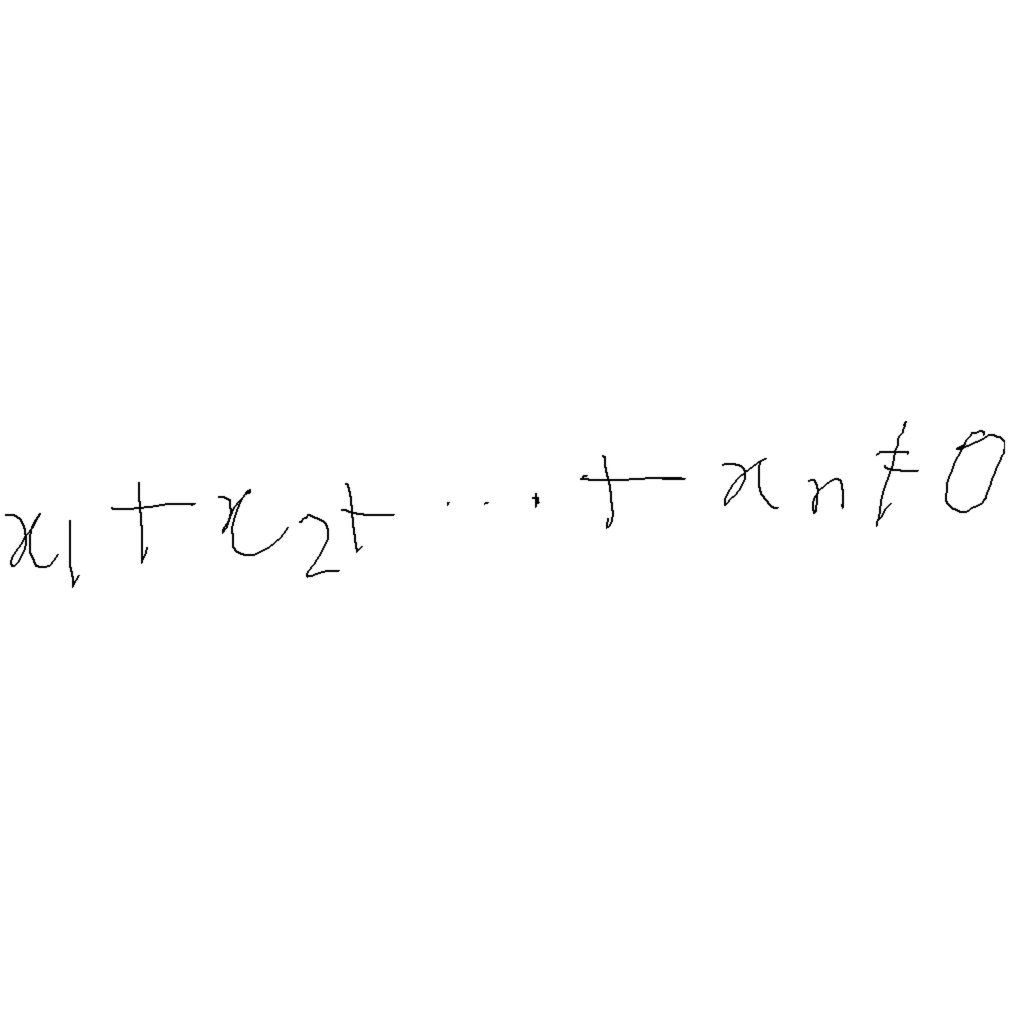 x₁ + x₂ + ... + xₙ ≠ 0